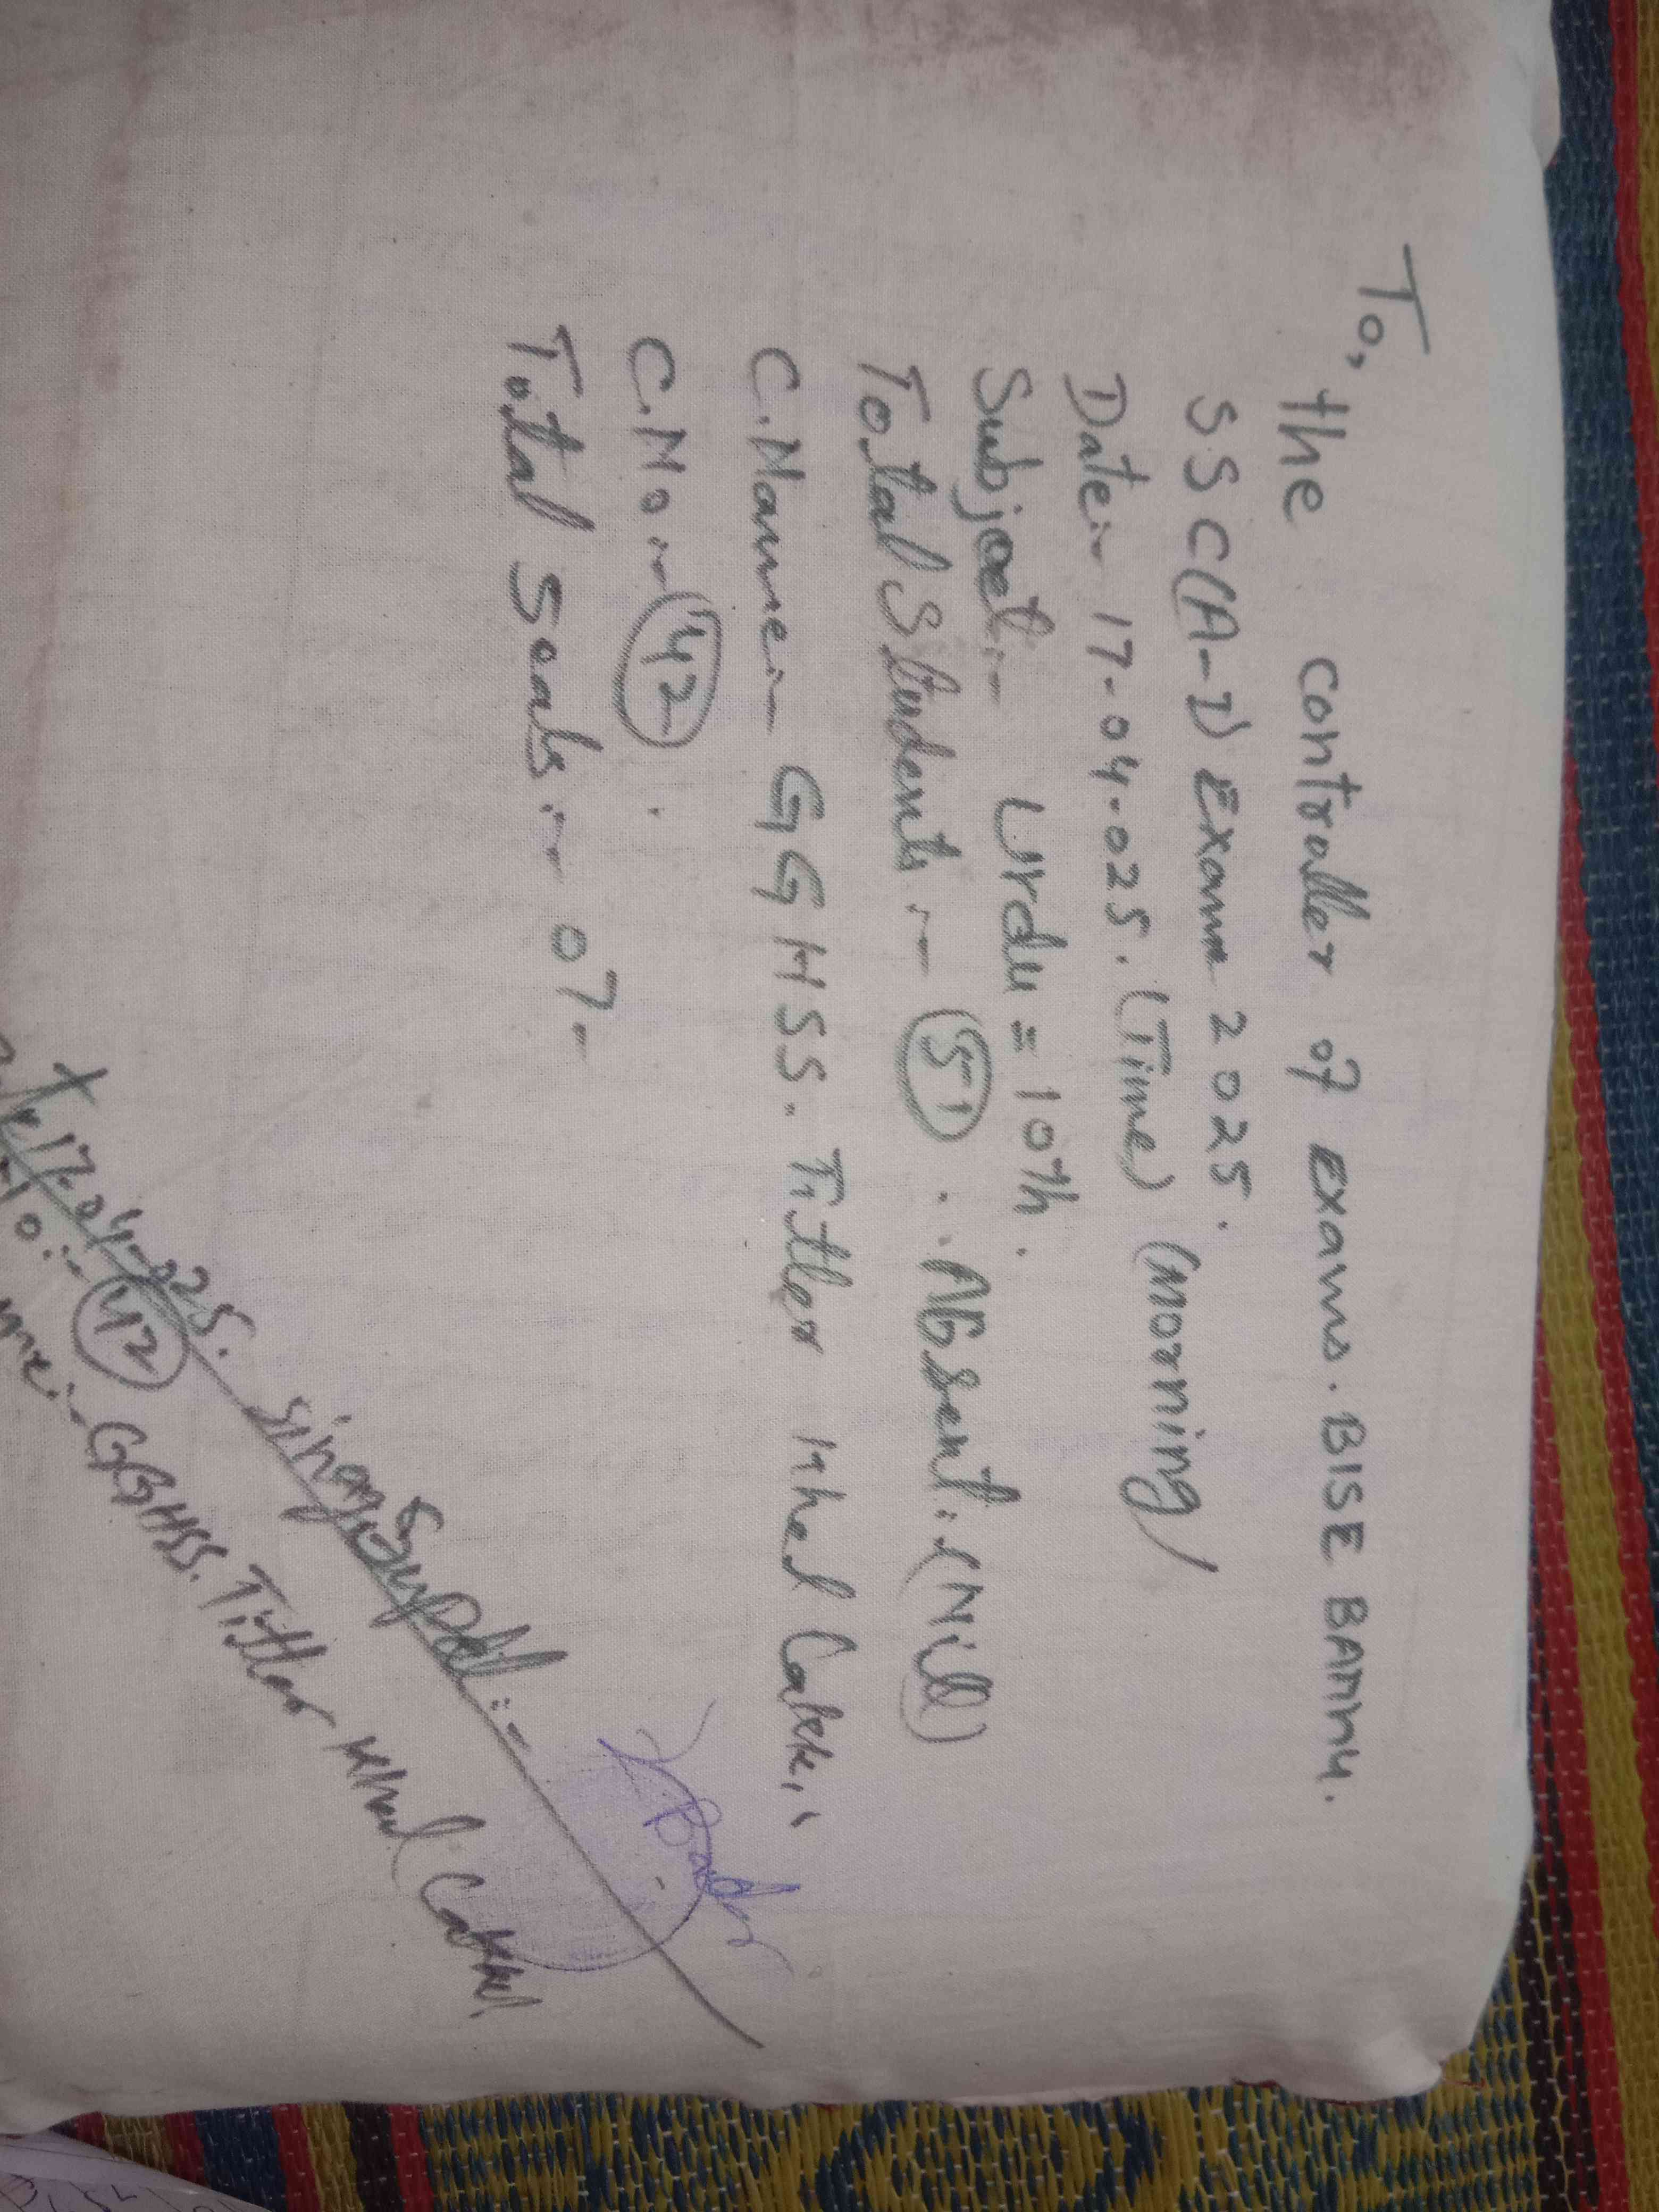 To,
the controller of Exams. BISE BANNU.
SSC(A-I) Exam 2025.
Date:- 17-04-025. (Time) (morning)
Subject:- Urdu = 10th.
Total Students:- "51" . Absent:(Nill)
C.Name:- GGHSS. Titter Khel Cakki
C.No:- "42"
Total Seals:- 07-
17-04-025. Sing: Supdt:-
Bader
42
GGHSS. Titter Khel Cakki